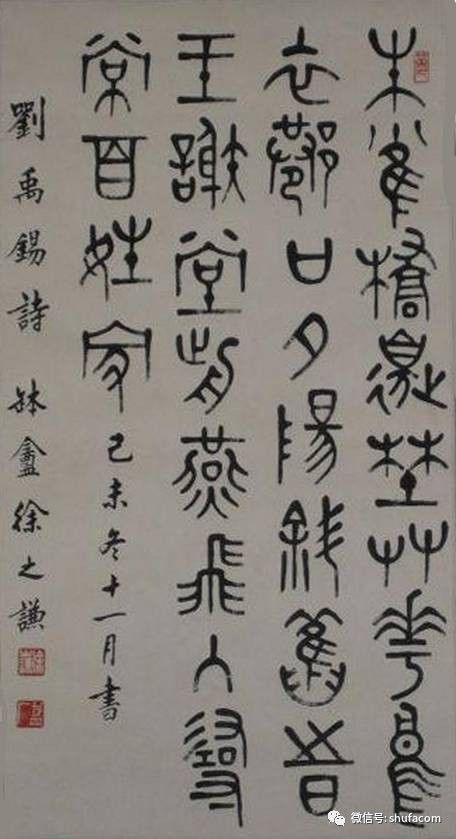 朱雀橋邊埜艸華烏
衣巷口夕陽斜舊旹
王謝堂前燕飛入尋
常百姓家 己未冬十一月書
劉禹錫詩 缽盦徐之謙
微信号: shufacom